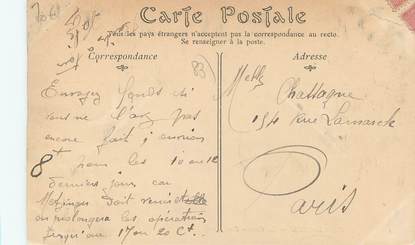 Carte Postale
Tous les pays étrangers n'acceptent pas la correspondance au recto.
Se renseigner à la poste.
Correspondance
Adresse
Envoyez fonds si
vous ne l'avez pas
encore fait
8 pour les 10 ou 12
derniers jours car
Metzinger doit venir
on prolongera les opérations
jusqu'au 17 ou 20 Ct.
Melle Chattagne
194 rue Lamarck
Paris